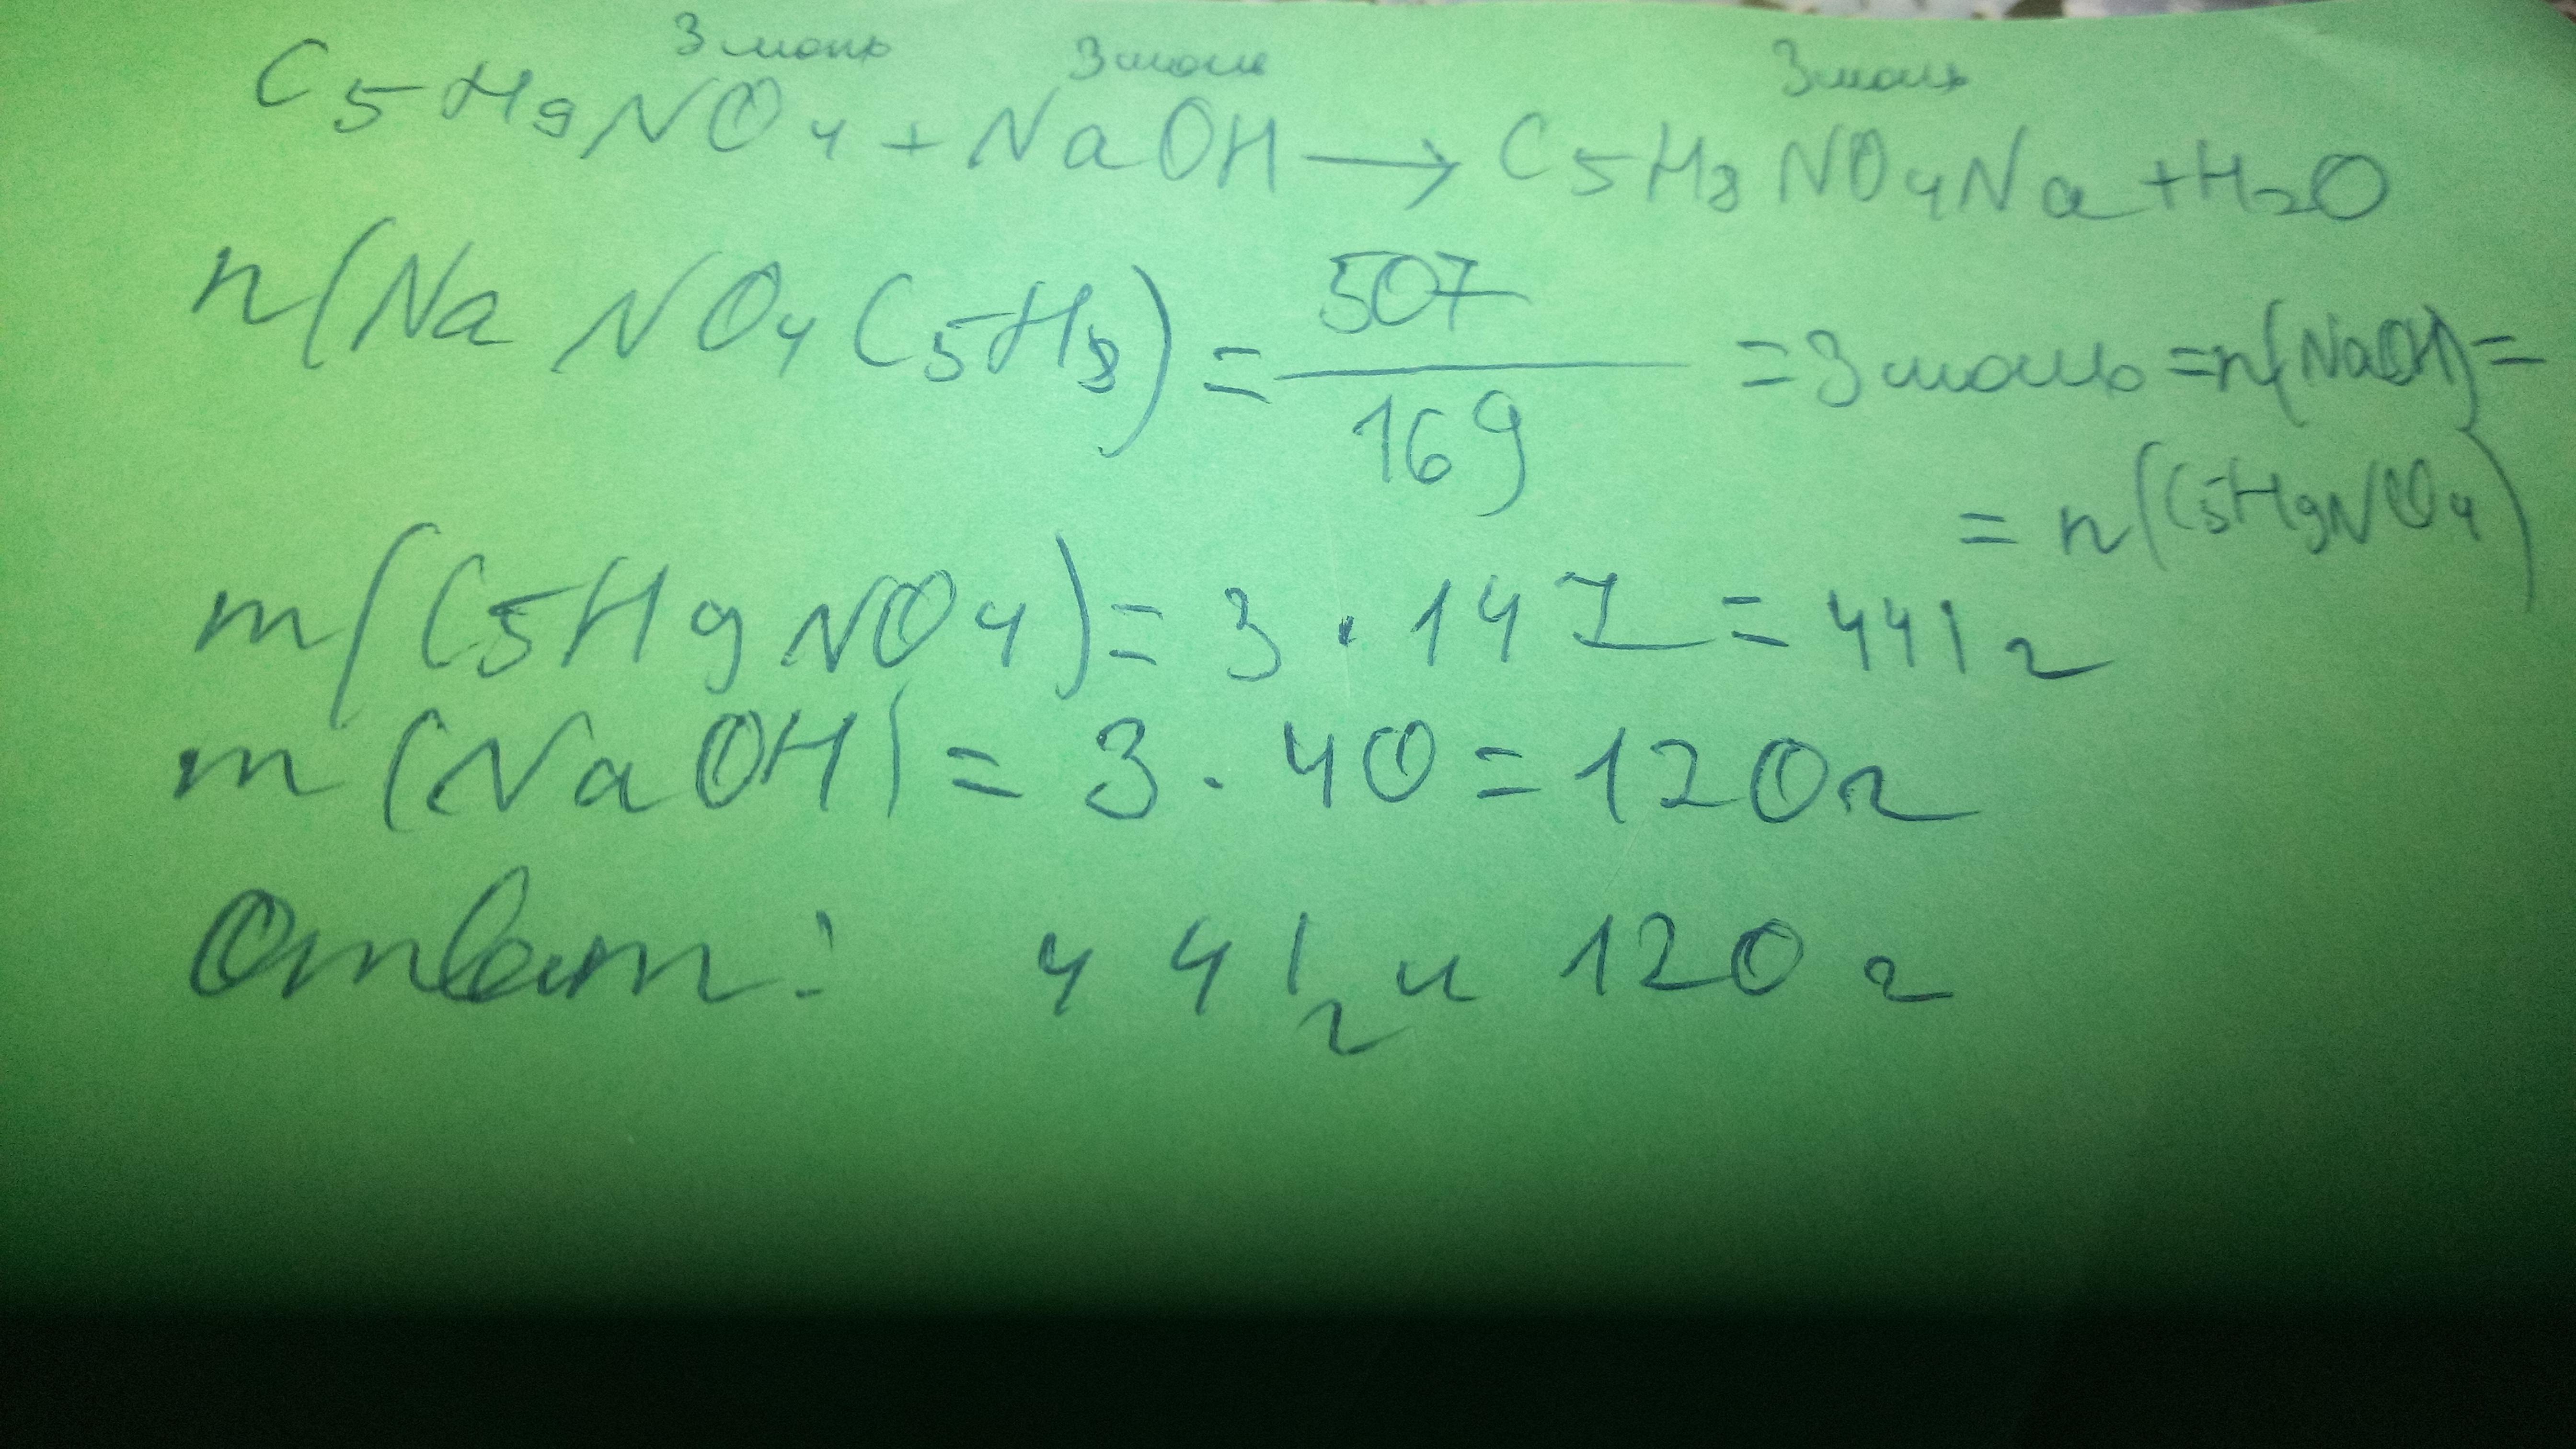 3 моль 3 моль 3 моль
C5H9NO4 + NaOH → C5H8NO4Na + H2O
n(NaNO4C5H8) = 507/169 = 3 моль = n(NaOH) =
= n(C5H9NO4)
m(C5H9NO4) = 3 · 147 = 441 г
m(NaOH) = 3 · 40 = 120 г
Ответ: 441 г и 120 г